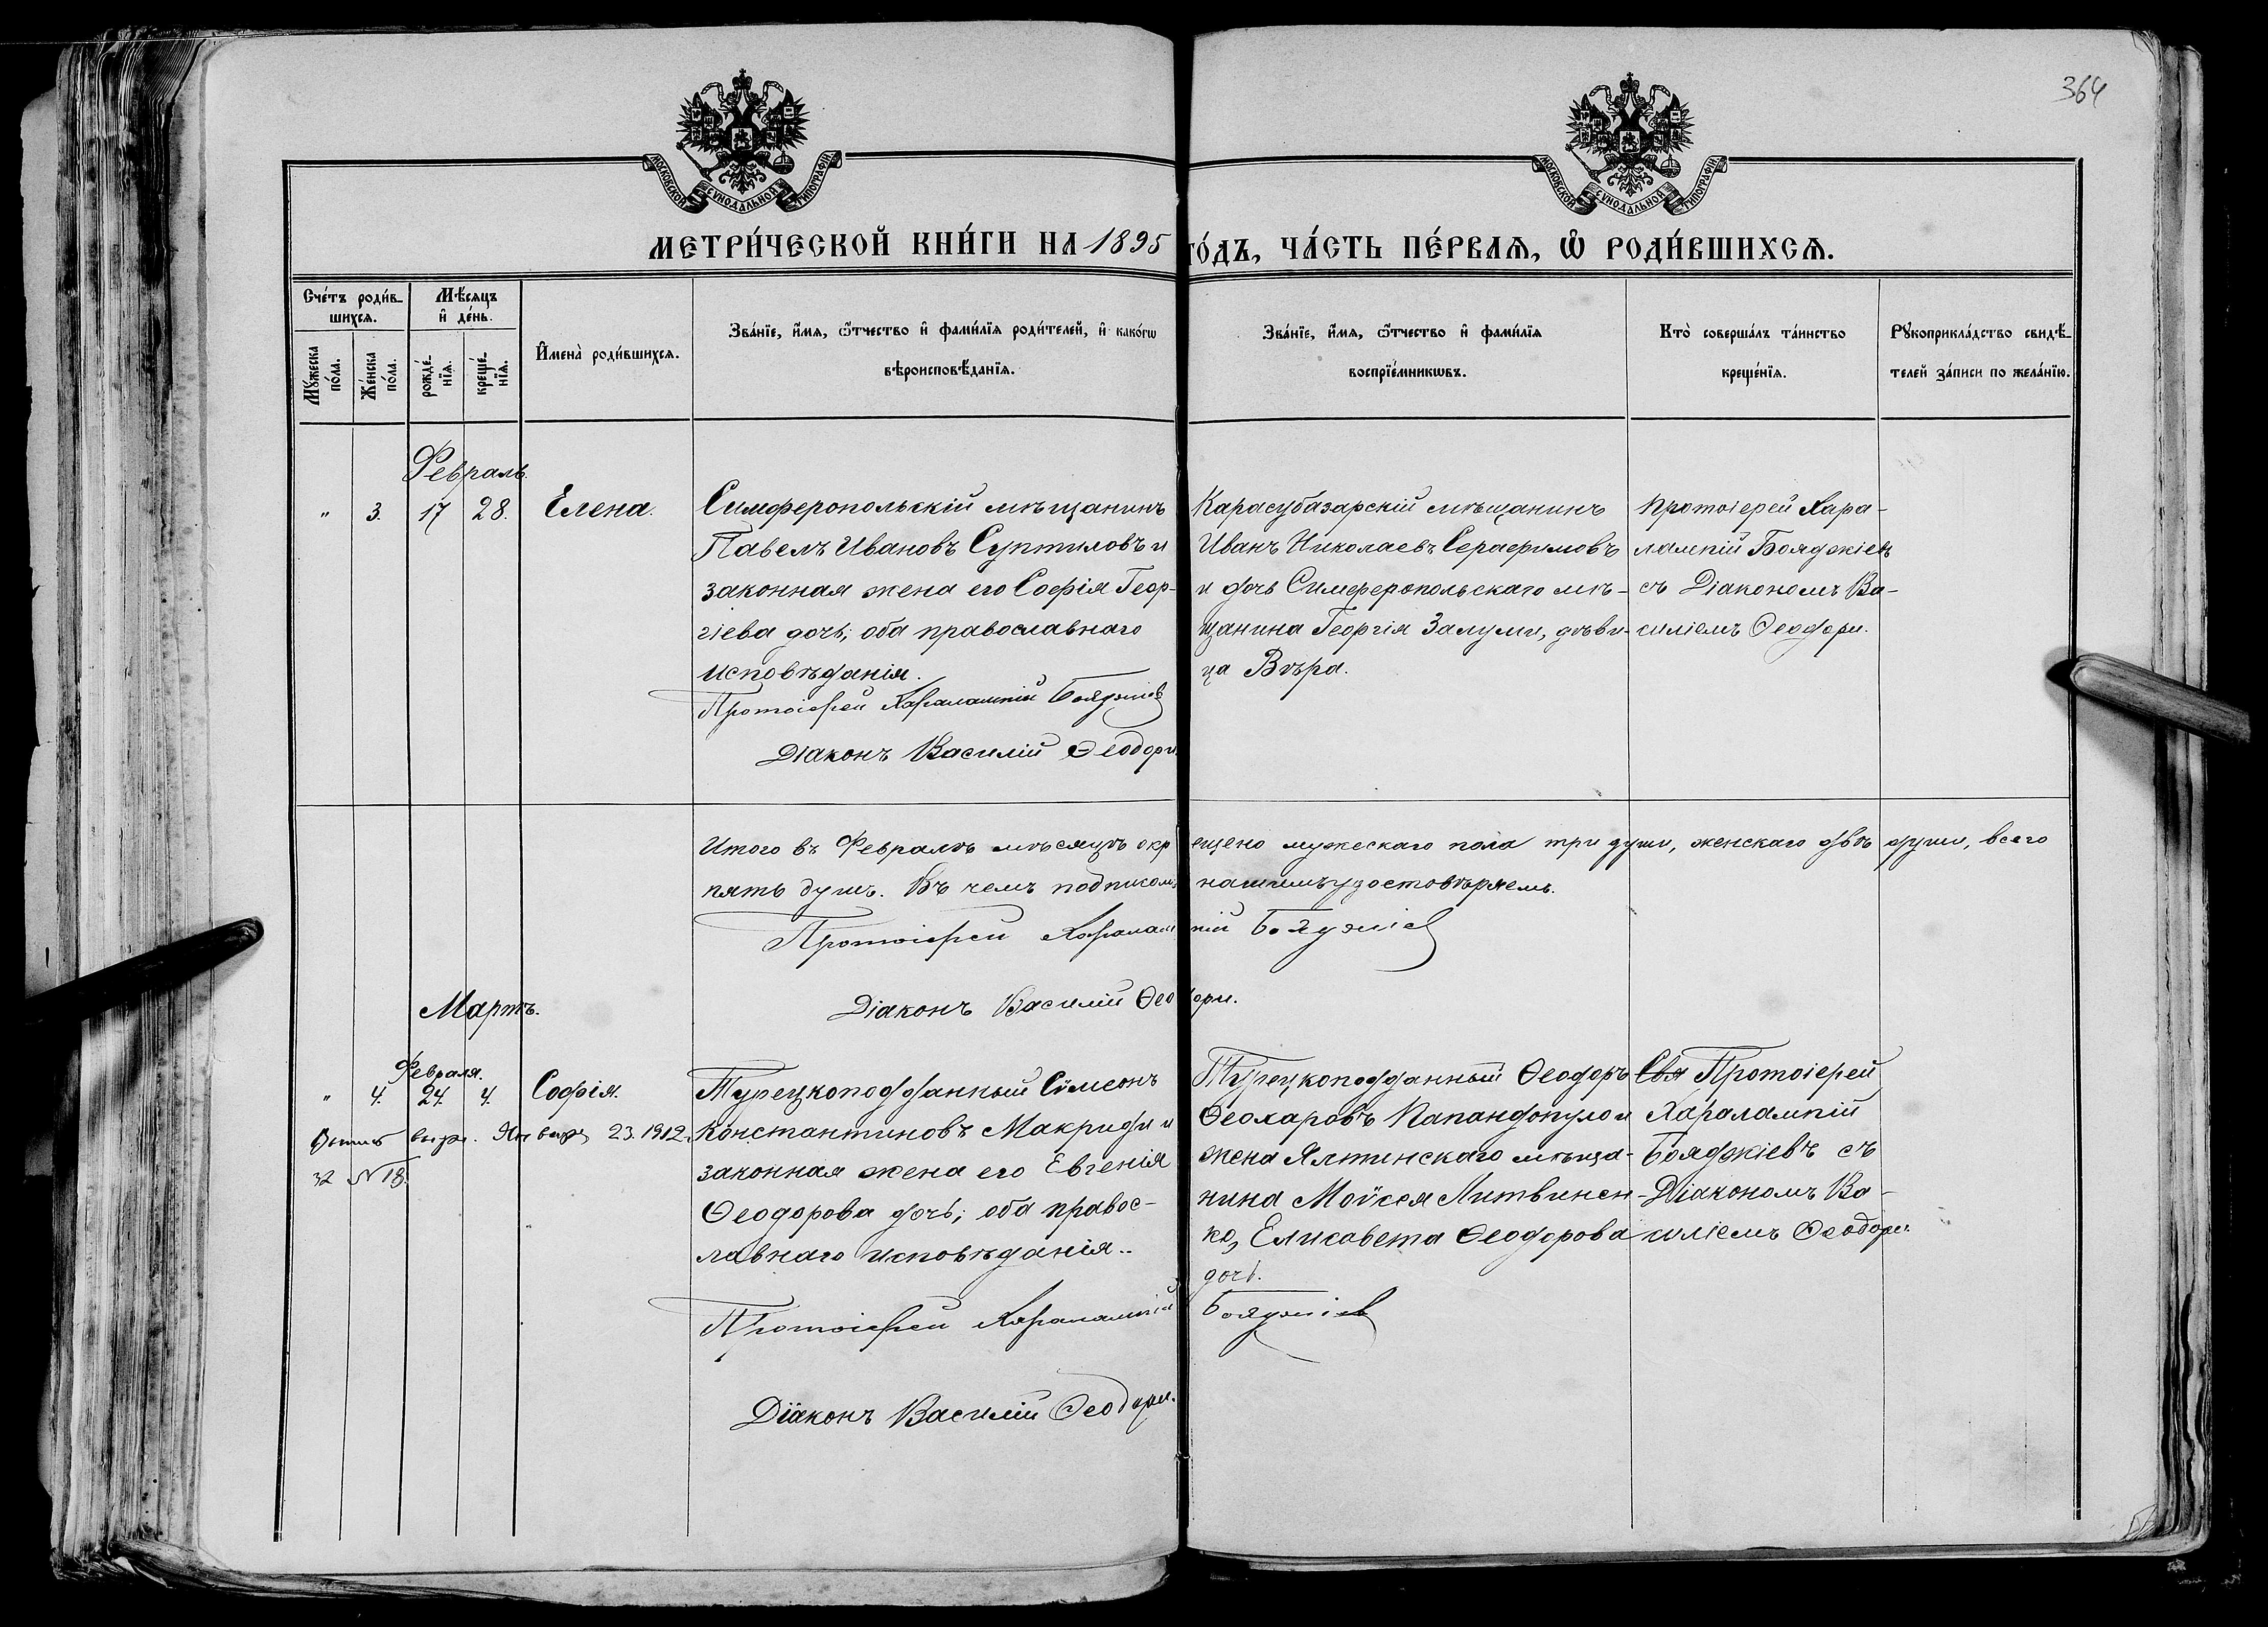 364
МОСКОВСКОЙ СУНОДАЛЬНОЙ ТИПОГРАФІИ
МОСКОВСКОЙ СУНОДАЛЬНОЙ ТИПОГРАФІИ
МЕТРИ́ЧЕСКОЙ КНИ́ГИ НА 1895 ГО́ДЪ, ЧА́СТЬ ПЕ́РВАѦ, Ѽ РОДИ́ВШИХСѦ.
Сче́тъ роди́вшихсѧ.
Мѣ́сѧцъ и҆ де́нь.
Мꙋ́жеска по́ла.
Же́нска по́ла.
рожде́нїѧ.
креще́нїѧ.
И҆мена̀ роди́вшихсѧ.
Зва́нїе, и҆́мѧ, ѻ҆́тчество и҆ фами́лїѧ роди́телей, и҆ како́гѡ
вѣроисповѣ́данїѧ.
Зва́нїе, и҆́мѧ, ѻ҆́тчество и҆ фами́лїѧ
воспрїе́мникѡвъ.
Кто̀ соверша́лъ та́инство
креще́нїѧ.
Рꙋкоприкла́дство свидѣ́-
телей за́писи по жела́нїю.
Февраль.
" 3. 17 28. Елена.
Симферопольскій мѣщанинъ
Павелъ Ивановъ Суптиловъ и
законная жена его Софія Геор-
гіева дочь; оба православнаго
исповѣданія.
Протоіерей Харалампій Бояджіев
Діаконъ Василій Ѳеодори
Карасубазарскій мѣщанинъ
Иванъ Николаевъ Серафимовъ
и дочь Симферопольскаго мѣ-
щанина Георгія Залуми, дѣви-
ца Вѣра.
Протоіерей Хара-
лампій Бояджіевъ
съ Діакономъ Ва-
силіемъ Ѳеодори.
Итого въ Февралѣ мѣсяцѣ окрещено мужескаго пола три души, женскаго двѣ души, всего
пять душъ. Въ чемъ подписомъ нашимъ удостовѣряемъ.
Протоіерей Харалампій Бояджіев
Діаконъ Василій Ѳеодори.
Мартъ.
Февраля.
" 4. 24. 4. Софія.
выд. Январ 23. 1912.
32 № 18.
Турецкоподданный Сѵмеонъ
Константиновъ Макриди и
законная жена его Евгенія
Ѳеодорова дочь; оба правос-
лавнаго исповѣданія..
Протоіерей Харалампій Бояджіев
Діаконъ Василій Ѳеодори.
Турецкоподданный Ѳеодоръ
Ѳеохаровъ Папандопуло и
жена Ялтинскаго мѣща-
нина Моѵсея Литвинен-
ко, Елисавета Ѳеодорова
дочь.
Свя Протоіерей
Харалампій
Бояджіевъ съ
Діакономъ Ва-
силіемъ Ѳеодори